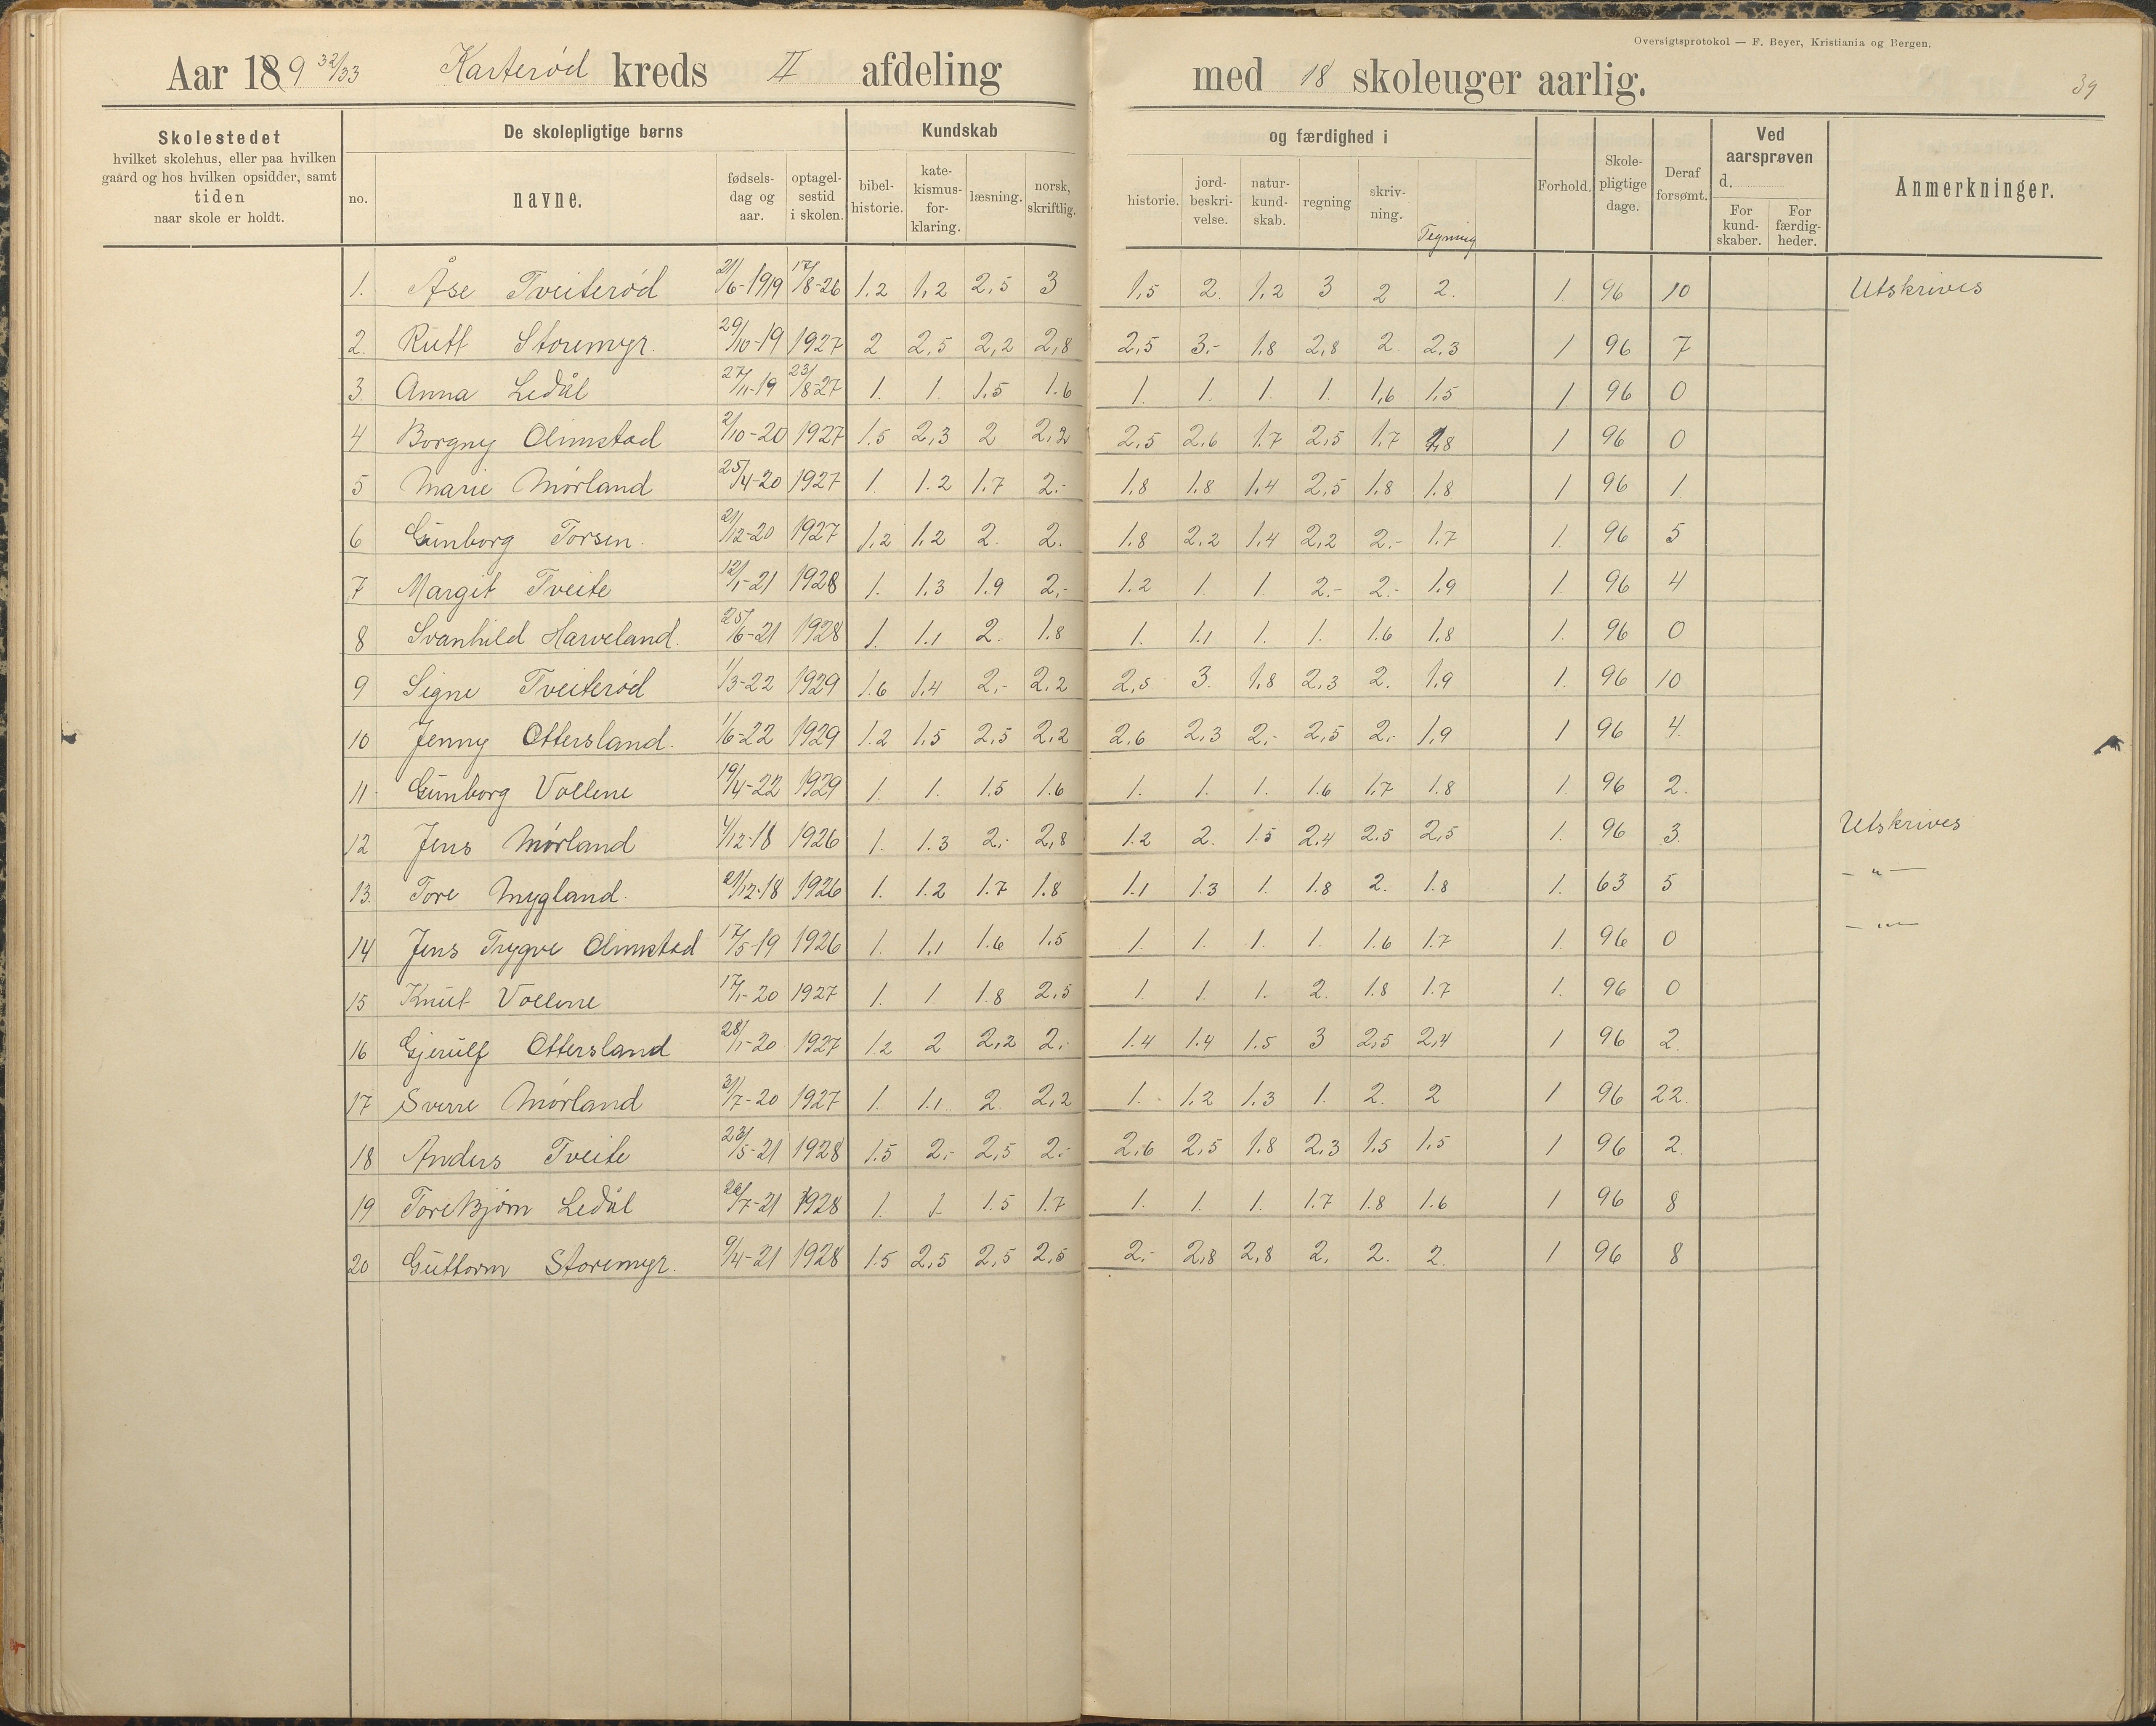 Oversigtsprotokol — F. Beyer, Kristiania og Bergen.
Aar 189 32/33 Karterød kreds II afdeling med 18 skoleuger aarlig. 39
Skolestedet hvilket skolehus, eller paa hvilken gaard og hos hvilken opsidder, samt tiden naar skole er holdt.
De skolepligtige børns
no. navne. fødsels-dag og aar. optagel-sestid i skolen.
Kundskab og færdighed i
bibel-historie. kate-kismus-for-klaring. læsning. norsk, skriftlig. historie. jord-beskri-velse. natur-kund-skab. regning skriv-ning. Tegning
Forhold. Skole-pligtige dage. Deraf forsømt. Ved aarsprøven d. For kund-skaber. For færdig-heder. Anmerkninger.
1. Åse Tveiterød 21/6-1919 17/8-26 1.2 1,2 2,5 3 1,5 2. 1,2 3 2 2. 1. 96 10 Utskrives
2. Rutt Storemyr. 29/10-19 1927 2 2,5 2,2 2,8 2,5 3.- 1.8 2,8 2. 2.3 1 96 7
3. Anna Ledål 27/11-19 23/8-27 1. 1. 1.5 1.6 1. 1. 1. 1. 1,6 1,5 1 96 0
4 Borgny Olimstad 2/10-20 1927 1.5 2,3 2 2,2 2,5 2,6 1.7 2,5 1.7 1,8 1 96 0
5 Marie Mørland 25/4-20 1927 1. 1.2 1.7 2.- 1.8 1.8 1,4 2,5 1.8 1.8 1 96 1.
6 Gunborg Torsen. 21/12-20 1927 1,2 1.2 2. 2. 1.8 2.2 1,4 2,2 2.- 1.7 1. 96 5
7 Margit Tveite 12/1-21 1928 1. 1.3 1.9 2,- 1.2 1. 1. 2.- 2.- 1.9 1. 96 4
8 Svanhild Harveland. 25/6-21 1928 1. 1.1 2. 1.8 1. 1.1 1. 1. 1.6 1.8 1. 96 0
9 Signe Tveiterød 1/3-22 1929 1.6 1.4 2,- 2,2 2,5 3. 1.8 2.3 2. 1.9 1. 96 10
10 Jenny Ottersland. 1/6-22 1929 1.2 1,5 2,5 2,2 2.6 2,3 2,- 2,5 2.- 1,9 1 96 4.
11 Gunborg Vollene 19/4-22 1929 1. 1. 1.5 1.6 1. 1. 1. 1.6 1,7 1.8 1. 96 2.
12 Jens Mørland 4/12-18 1926 1. 1.3 2,- 2,8 1.2 2. 1.5 2.4 2.5 2,5 1. 96 3. Utskrives
13. Tore Mygland. 21/12-18 1926 1. 1.2 1.7 1.8 1.1 1.3 1. 1.8 2. 1.8 1. 63 5 – " –
14 Jens Trygve Olimstad 17/5-19 1926 1. 1.1 1.6 1.5 1. 1. 1. 1. 1.6 1.7 1. 96 0 – " –
15 Knut Vollene 17/1-20 1927 1. 1. 1.8 2,5 1. 1. 1. 2. 1.8 1.7 1. 96 0
16 Gjerulf Ottersland 28/1-20 1927 1.2 2 2,2 2.- 1.4 1.4 1.5 3 2,5 2,4 1 96 2.
17 Sverre Mørland 31/7-20 1927 1. 1.1 2. 2,2 1. 1,2 1.3 1. 2. 2 1 96 22.
18 Anders Tveite 23/5-21 1928 1.5 2,- 2,5 2.- 2,6 2,5 1.8 2,3 1,5 1.5 1 96 2.
19 Torebjørn Ledål 26/7-21 1928 1. 1. 1.5 1.7 1. 1. 1. 1.7 1.8 1.6 1 96 8
20 Guttorm Storemyr. 9/4-21 1928 1.5 2,5 2,5 2,5 2.- 2,8 2,8 2. 2. 2. 1 96 8